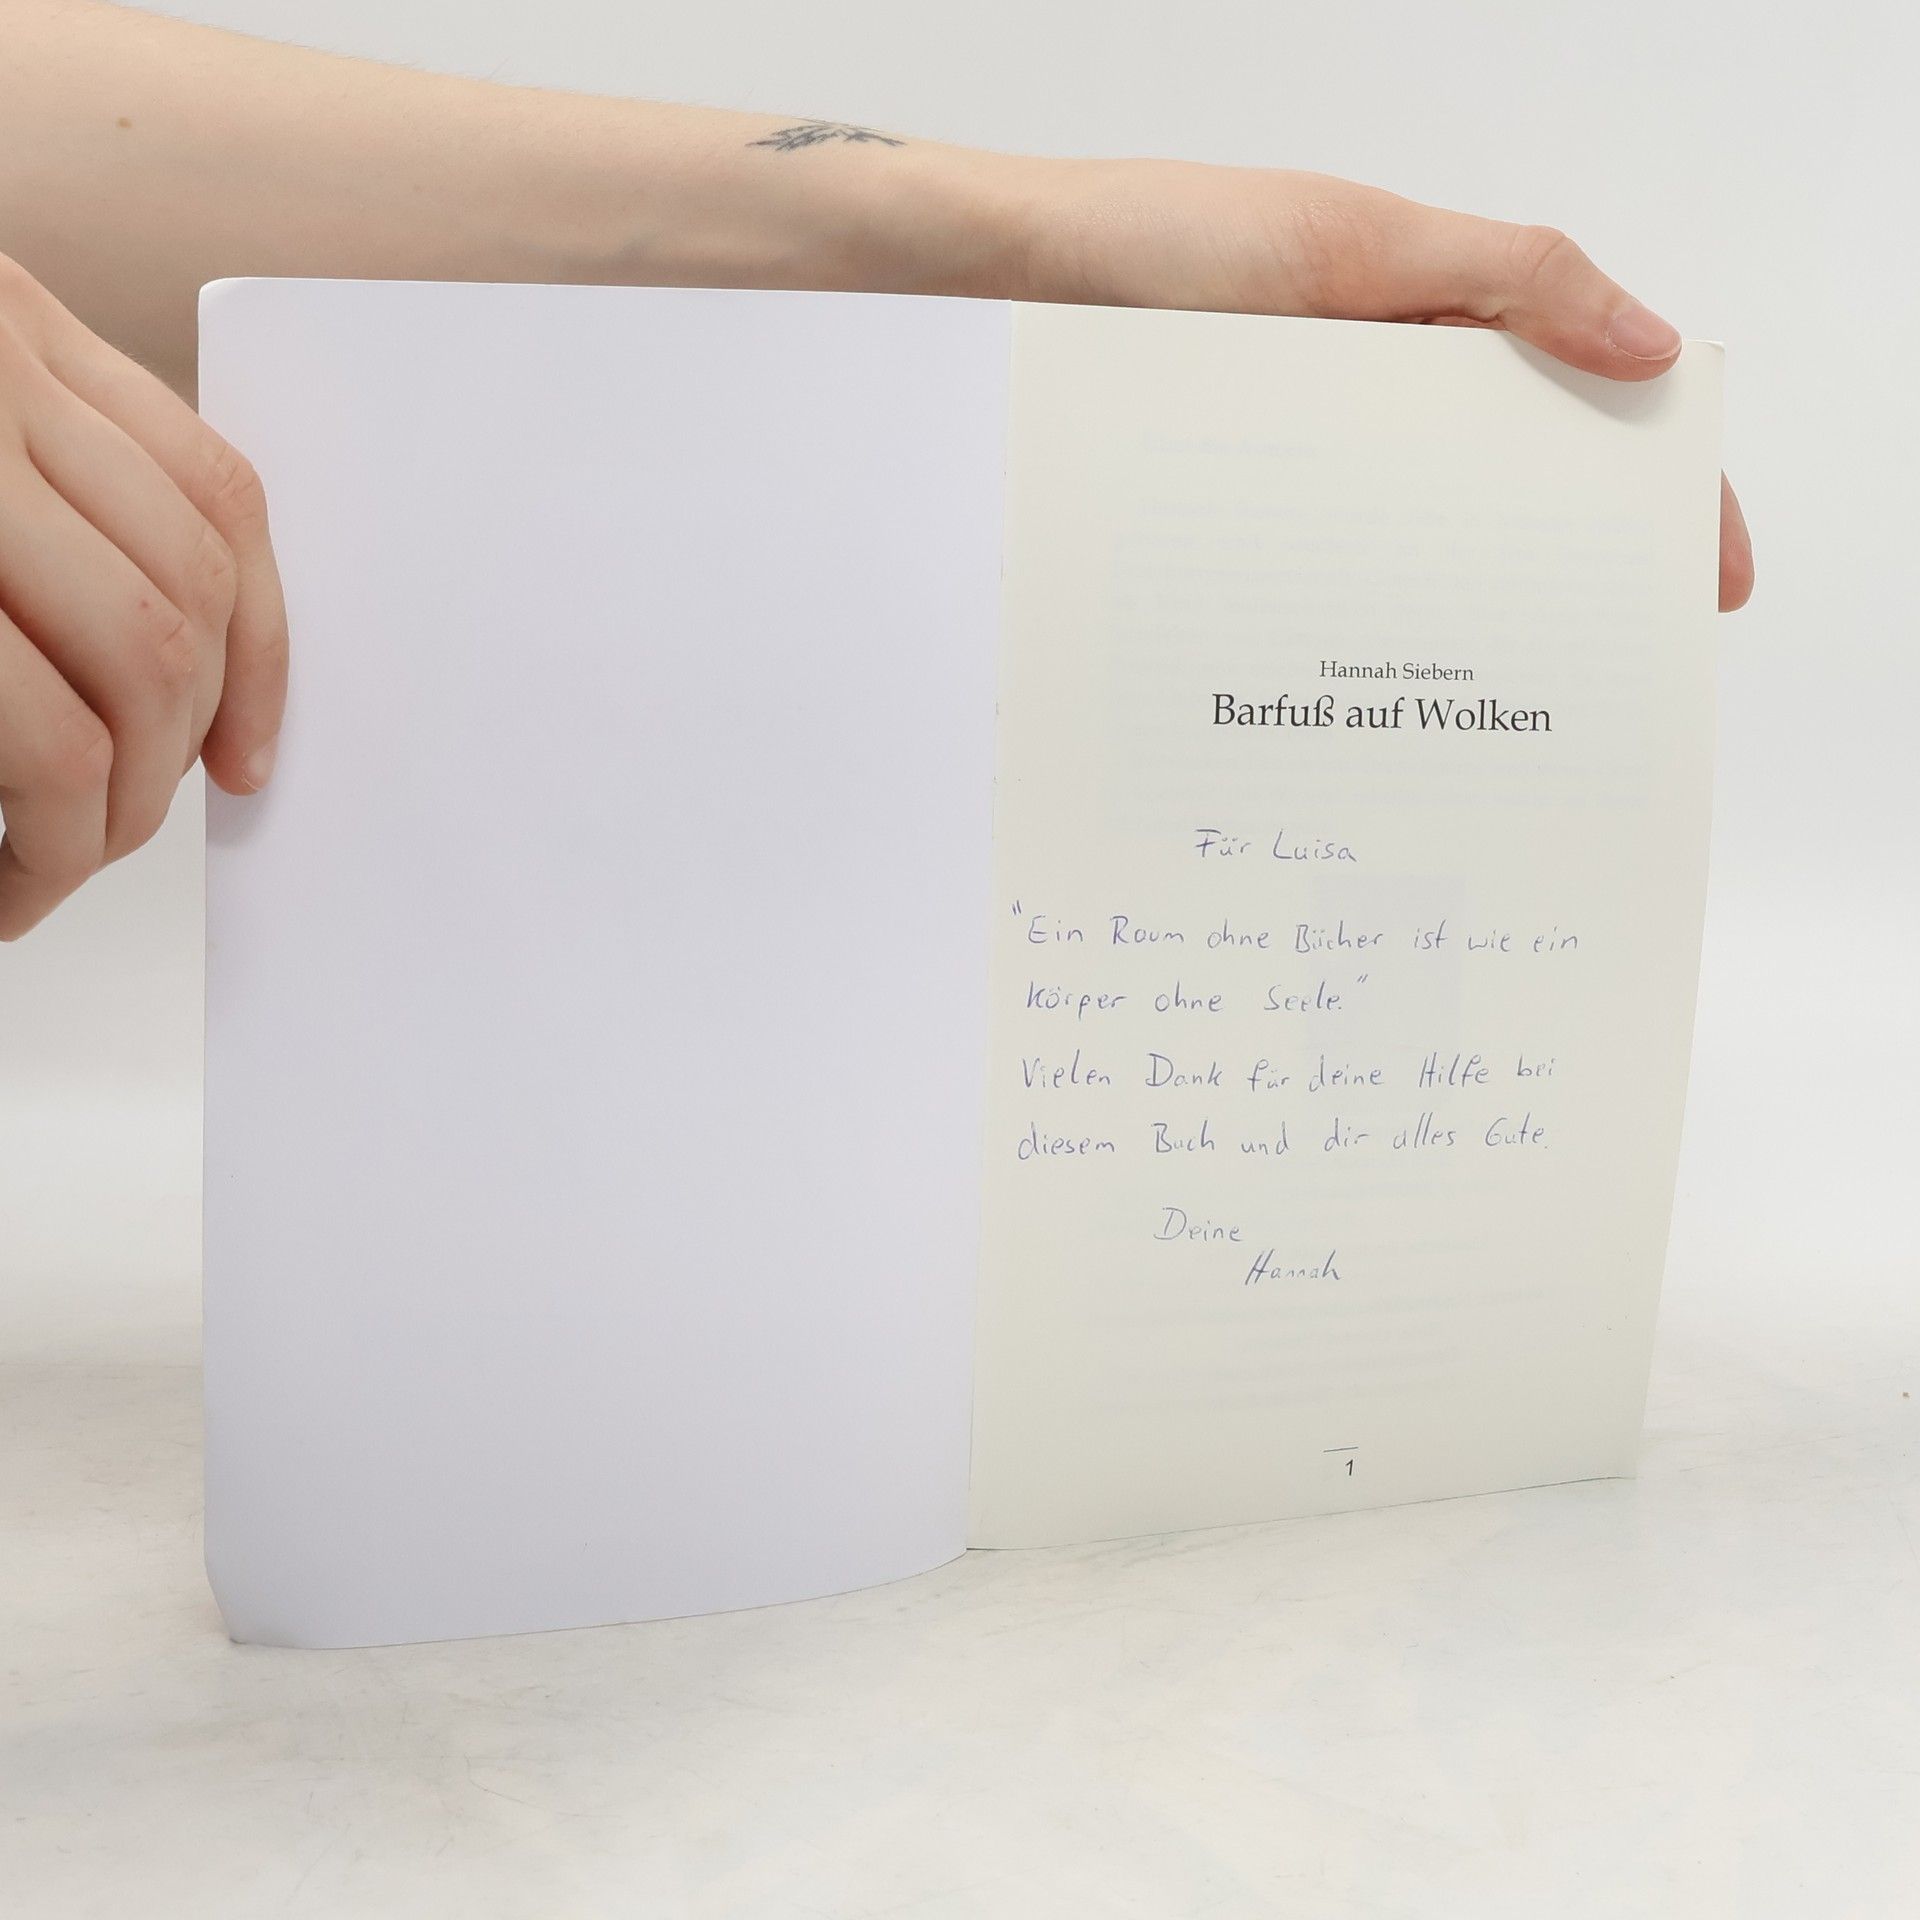 Hannah Siebern
Barfuß auf Wolken
Für Luisa
"Ein Raum ohne Bücher ist wie ein
Körper ohne Seele."
Vielen Dank für deine Hilfe bei
diesem Buch und dir alles Gute.
Deine
Hannah
1